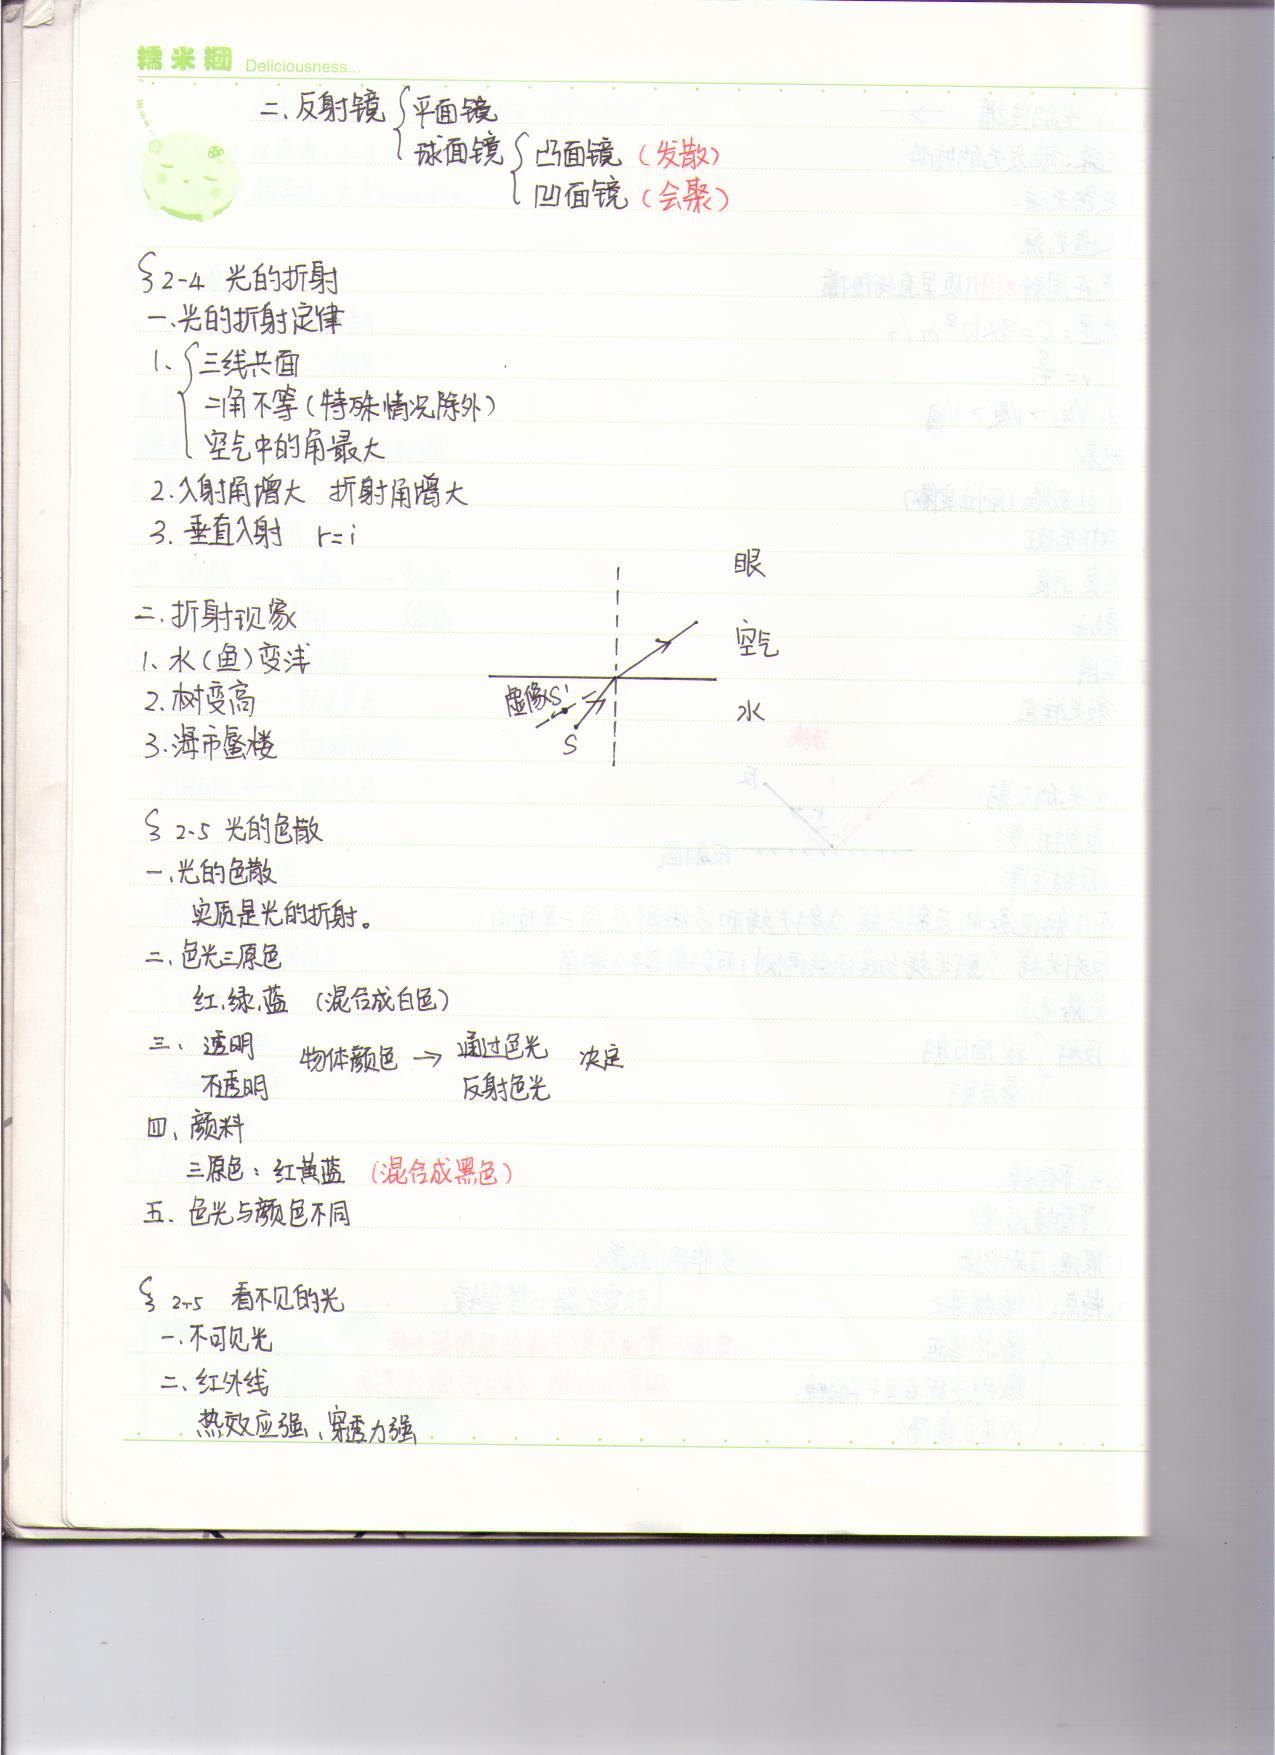 糯米糰 Deliciousness...
二、反射镜 { 平面镜
球面镜 { 凸面镜（发散）
凹面镜（会聚）
§2-4 光的折射
一、光的折射定律
1、{ 三线共面
二角不等（特殊情况除外）
空气中的角最大
2.入射角增大 折射角增大
3. 垂直入射 r=i
眼
二.折射现象
空气
1、水（鱼）变浅
2.树变高
虚像S'
水
3.海市蜃楼
S
§ 2-5 光的色散
一.光的色散
实质是光的折射。
二、色光三原色
红、绿、蓝 （混合成白色）
三、透明 物体颜色 → 通过色光 决定
不透明 反射色光
四、颜料
三原色：红黄蓝 （混合成黑色）
五. 色光与颜色不同
§ 2-5 看不见的光
一.不可见光
二、红外线
热效应强、穿透力强